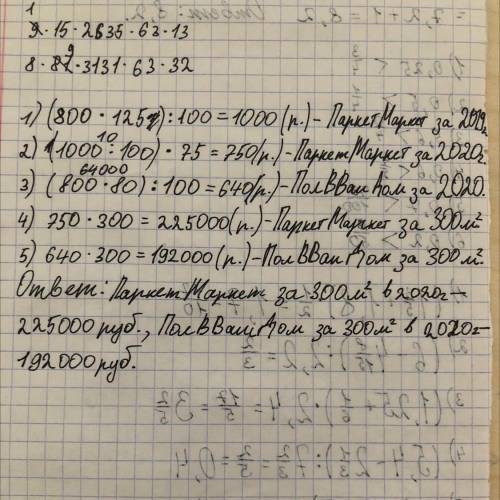 1
2·15·2635·63·13
9
8·87·3131·63·32
1) (800·125):100=1000(р.)-ПаркетМаркет за 2019г.
10
2) (1000:100)·75=750(р.)-ПаркетМаркет за 2020г.
64000
3) (800·80):100=640(р.)-ПолВВашДом за 2020.
4) 750·300=225000(р.)-ПаркетМаркет за 300м²
5) 640·300=192000(р.)-ПолВВашДом за 300м².
Ответ: ПаркетМаркет за 300м² в 2020г-
225000 руб., ПолВВашДом за 300м² в 2020г-
192000 руб.